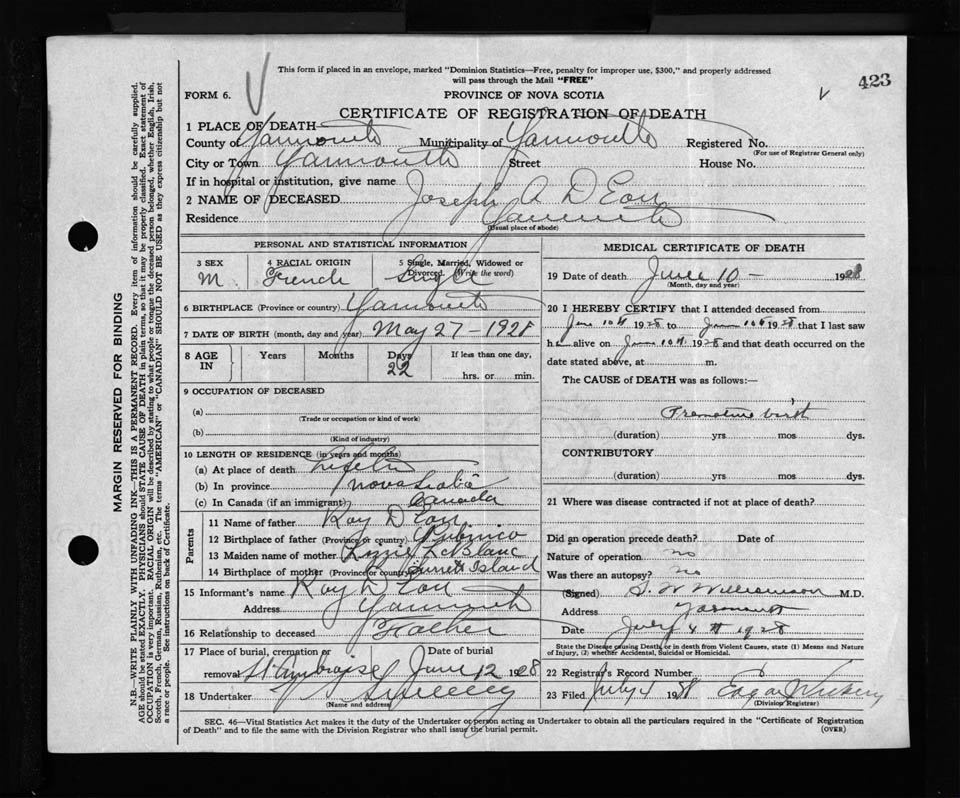 This form if placed in an envelope, marked "Dominion Statistics—Free, penalty for improper use, $300," and properly addressed
will pass through the Mail "FREE"
423
FORM 6.
PROVINCE OF NOVA SCOTIA
CERTIFICATE OF REGISTRATION OF DEATH
1 PLACE OF DEATH—
County of Yarmouth Municipality of Yarmouth Registered No.
(For use of Registrar General only)
City or Town Yarmouth Street House No.
If in hospital or institution, give name
2 NAME OF DECEASED Joseph A D Eon
Residence Yarmouth
(Usual place of abode)
PERSONAL AND STATISTICAL INFORMATION
3 SEX 4 RACIAL ORIGIN 5 Single, Married, Widowed or
Divorced. (Write the word)
M. French Single
6 BIRTHPLACE (Province or country) Yarmouth
7 DATE OF BIRTH (month, day and year) May 27-1928
8 AGE IN Years Months Days If less than one day,
22 hrs. or min.
9 OCCUPATION OF DECEASED
(a)
(Trade or occupation or kind of work)
(b)
(Kind of industry)
10 LENGTH OF RESIDENCE (in years and months)
(a) At place of death
(b) In province Nova Scotia
(c) In Canada (if an immigrant) Canada
Parents
11 Name of father Ray D Eon
12 Birthplace of father (Province or country) Pubnico
13 Maiden name of mother LeBlanc
14 Birthplace of mother (Province or country) Surrett Island
15 Informant's name Ray D Eon
Address Yarmouth
16 Relationship to deceased Father
17 Place of burial, cremation or Date of burial
removal June 12 1928
18 Undertaker Sweeney
(Name and address)
MEDICAL CERTIFICATE OF DEATH
19 Date of death June 10 - 1928
(Month, day and year)
20 I HEREBY CERTIFY that I attended deceased from
June 10th 1928 to June 10th 1928 that I last saw
h alive on June 10th 1928 and that death occurred on the
date stated above, at m.
The CAUSE of DEATH was as follows:—
Premature birth
(duration) yrs mos dys.
CONTRIBUTORY
(duration) yrs mos dys.
21 Where was disease contracted if not at place of death?
Did an operation precede death? Date of
Nature of operation no
Was there an autopsy? no
(Signed) S. W Williamson M.D.
Address Yarmouth
Date July 4th 1928
State the Disease causing Death, or in death from Violent Causes, state (1) Means and Nature
of Injury, (2) whether Accidental, Suicidal or Homicidal.
22 Registrar's Record Number
23 Filed July 4 1928 Edgar
(Division Registrar)
SEC. 46—Vital Statistics Act makes it the duty of the Undertaker or person acting as Undertaker to obtain all the particulars required in the "Certificate of Registration
of Death" and to file the same with the Division Registrar who shall issue the burial permit.
(OVER)
MARGIN RESERVED FOR BINDING
N.B.—WRITE PLAINLY WITH UNFADING INK—THIS IS A PERMANENT RECORD. Every item of information should be carefully supplied.
AGE should be stated EXACTLY. PHYSICIANS should STATE CAUSE OF DEATH in plain terms, so that it may be properly classified. Exact statement of
OCCUPATION is very important. RACIAL ORIGIN will be described by stating to what people or tongue the deceased person belonged, whether English, Irish,
Scotch, French, German, Russian, Ruthenian, etc. The terms "AMERICAN" or "CANADIAN" SHOULD NOT BE USED as they express citizenship but not
a race or people. See instructions on back of Certificate.